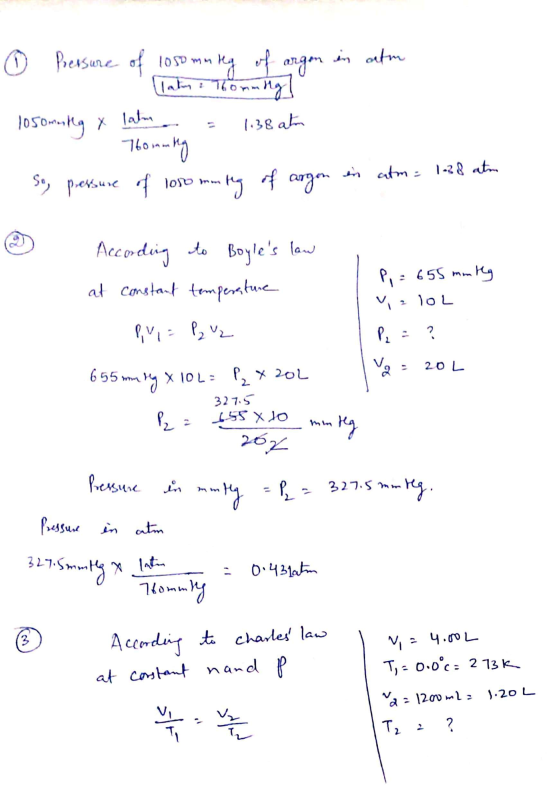 ① Pressure of 1050 mm Hg of argon in atm
1 atm = 760 mm Hg
1050 mm Hg × 1 atm / 760 mm Hg = 1.38 atm
So, pressure of 1050 mm Hg of argon in atm = 1.38 atm
② According to Boyle's law
at constant temperature
P₁V₁ = P₂V₂
655 mm Hg × 10 L = P₂ × 20 L
P₂ = 655 × 10 / 20 2 mm Hg
327.5
P₁ = 655 mm Hg
V₁ = 10 L
P₂ = ?
V₂ = 20 L
Pressure in mm Hg = P₂ = 327.5 mm Hg.
Pressure in atm
327.5 mm Hg × 1 atm / 760 mm Hg = 0.431 atm
③ According to Charles' law
at constant n and P
V₁/T₁ = V₂/T₂
V₁ = 4.00 L
T₁ = 0.0°C = 273 K
V₂ = 1200 mL = 1.20 L
T₂ = ?